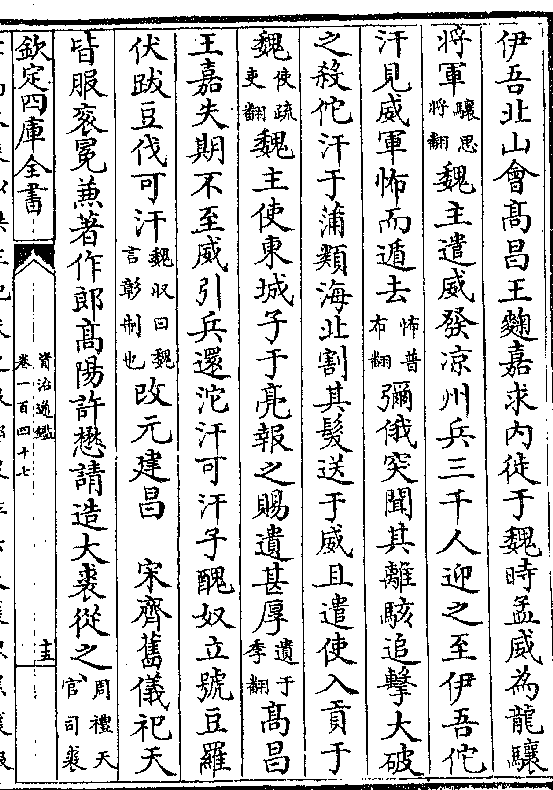 伊吾北山會髙昌王麴嘉求内徙于魏時孟威為龍驤
將軍驤思將翻魏主遣威發凉州兵三千人迎之至伊吾佗
汗見威軍怖而遁去怖普布翻彌俄突聞其離駭追擊大破
之殺佗汗于蒲類海北割其髮送于威且遣使入貢于
魏使疏吏翻魏主使東城子于亮報之賜遺甚厚遺于季翻髙昌
王嘉失期不至威引兵還沱汗可汗子醜奴立號豆羅
伏跋豆伐可汗魏收曰魏言彰制也改元建昌 宋齊舊儀祀天
皆服衮冕兼著作郎髙陽許懋請造大裘從之周禮天官司裘
欽定四庫全書
資治通鑑
卷一百四十七
十五